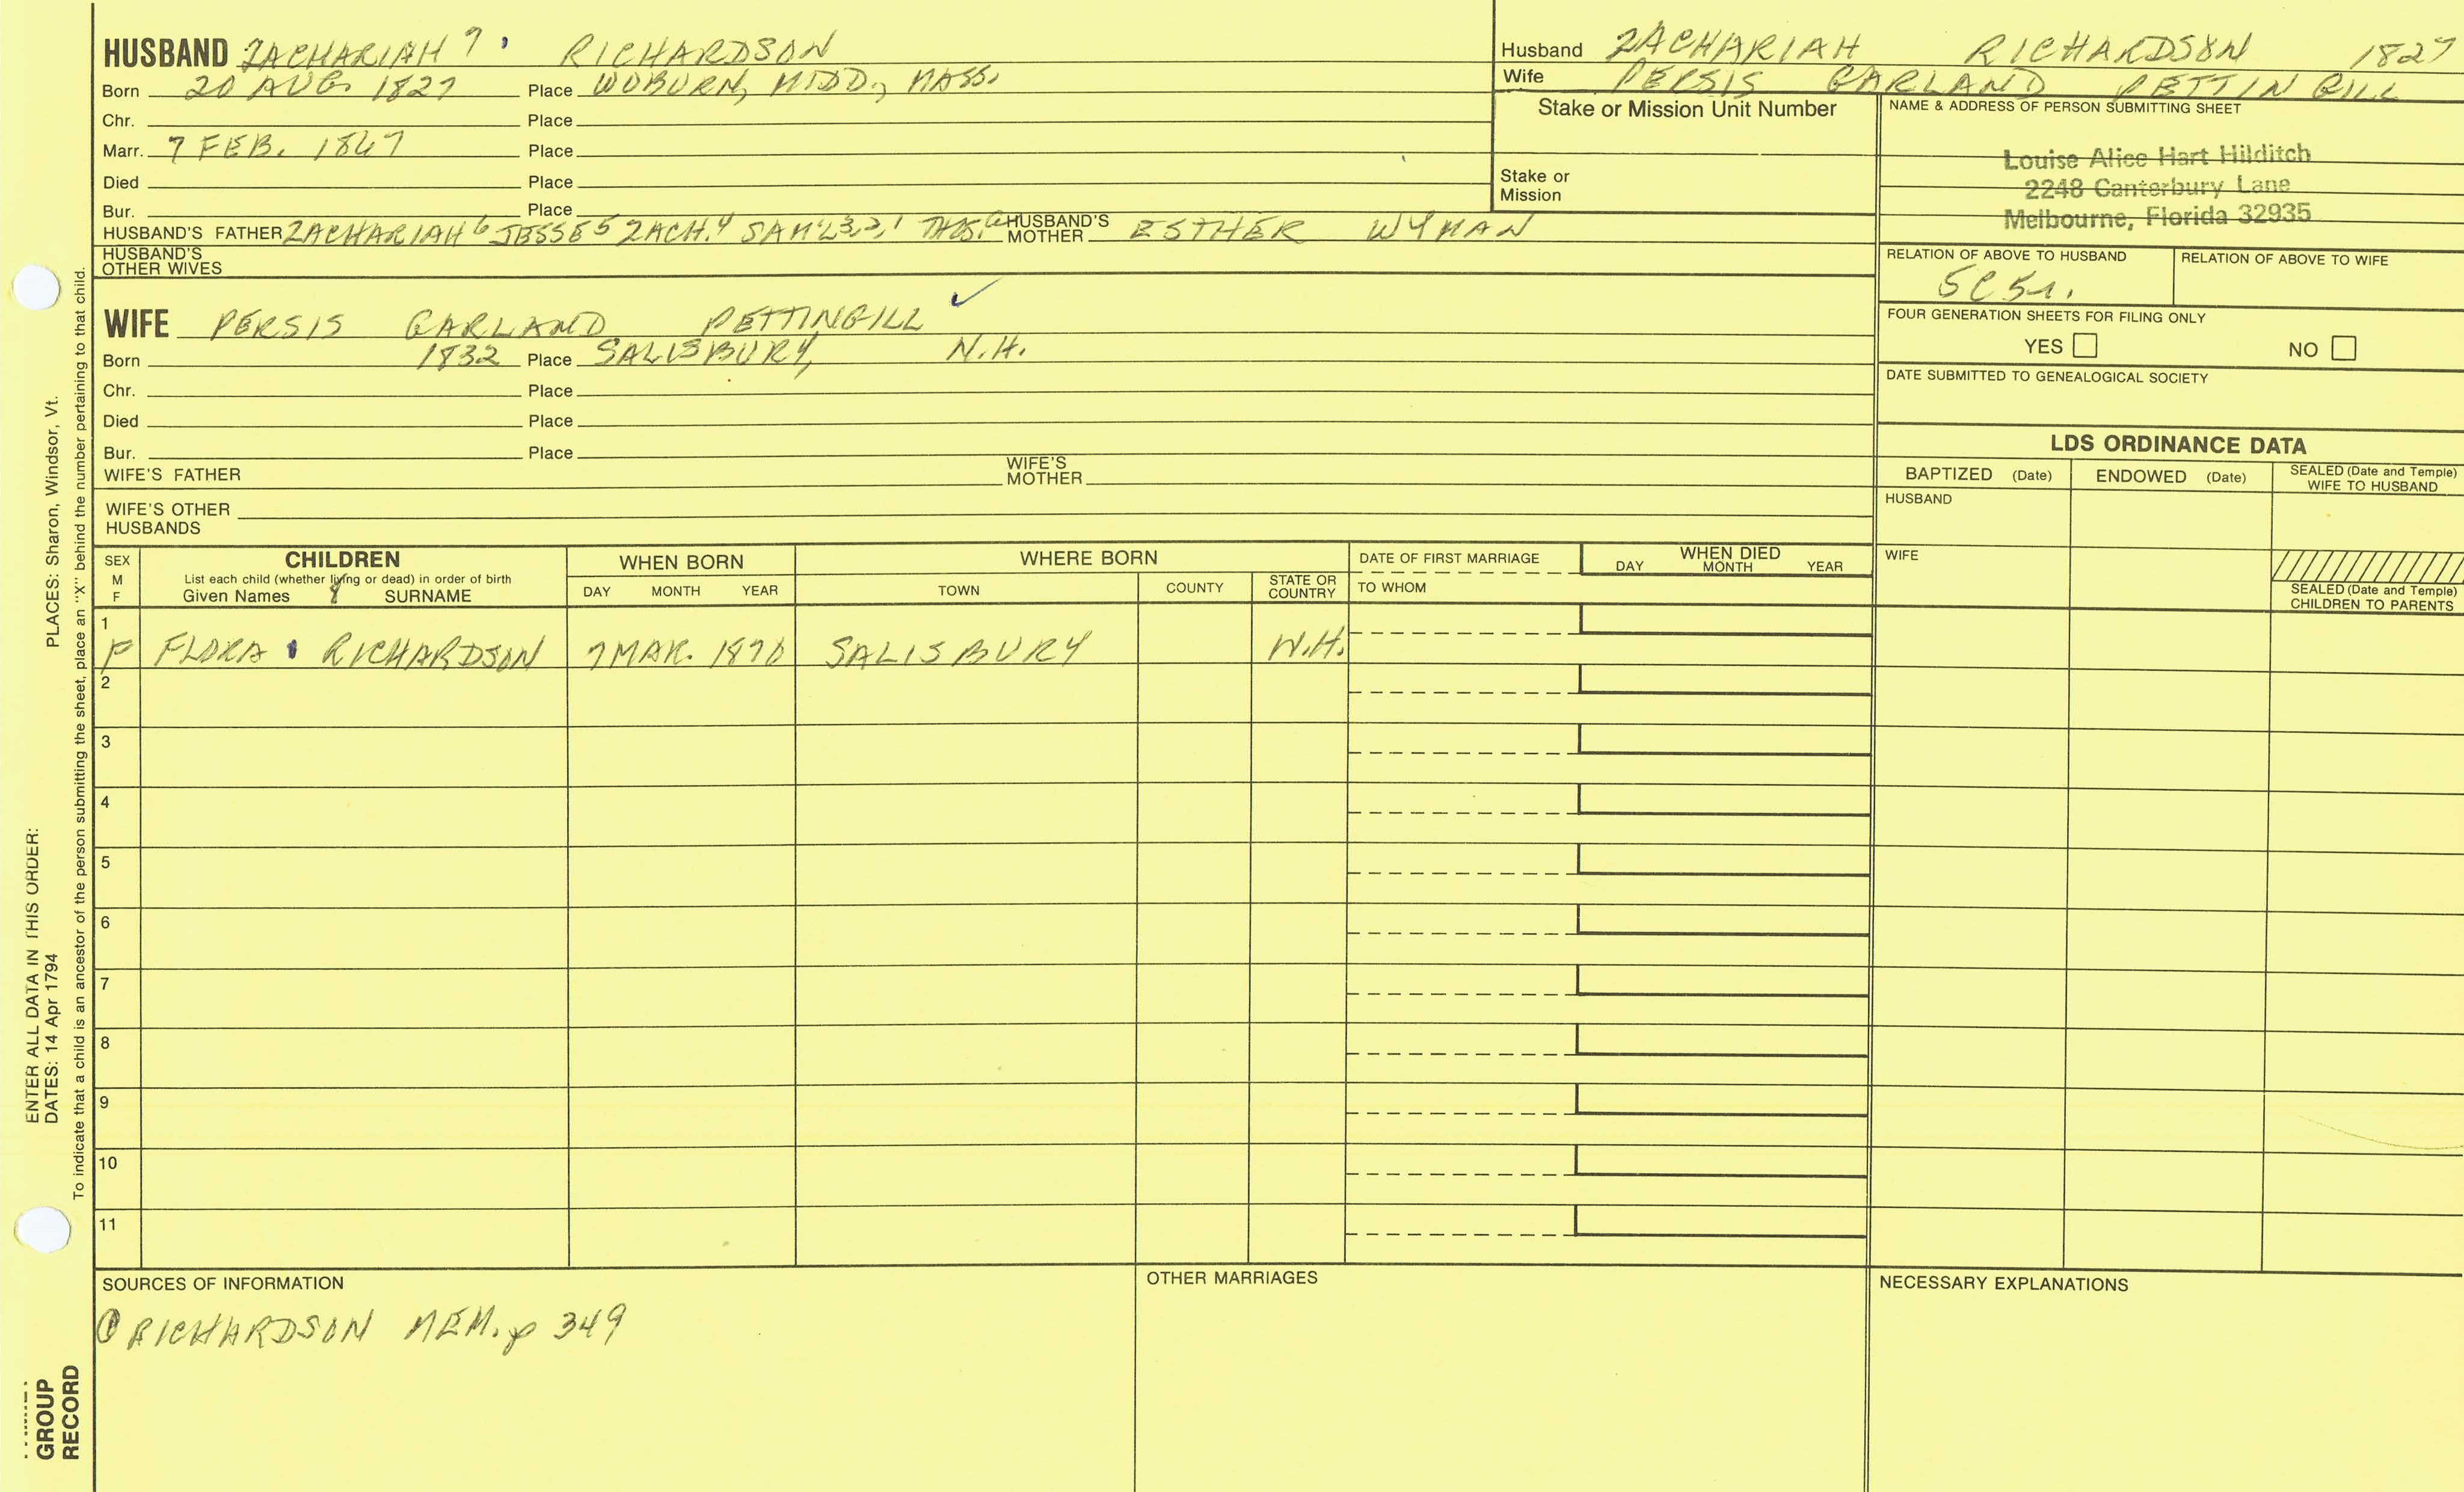 HUSBAND ZACHARIAH 7 RICHARDSON
Born 20 AUG. 1827 Place WOBURN, MIDD., MASS.
Chr. Place
Marr. 7 FEB. 1867 Place
Died Place
Bur. Place
HUSBAND'S FATHER ZACHARIAH 6 JESSE 5 ZACH. 4 SAM'L 3, 2, 1 THOS. HUSBAND'S MOTHER ESTHER WYMAN
HUSBAND'S OTHER WIVES
WIFE PERSIS GARLAND PETTINGILL ✓
Born 1832 Place SALISBURY, N.H.
Chr. Place
Died Place
Bur. Place
WIFE'S FATHER WIFE'S MOTHER
WIFE'S OTHER HUSBANDS
Husband ZACHARIAH RICHARDSON 1827
Wife PERSIS GARLAND PETTINGILL
Stake or Mission Unit Number
Stake or Mission
NAME & ADDRESS OF PERSON SUBMITTING SHEET
Louise Alice Hart Hilditch
2248 Canterbury Lane
Melbourne, Florida 32935
RELATION OF ABOVE TO HUSBAND RELATION OF ABOVE TO WIFE
5C5r.
FOUR GENERATION SHEETS FOR FILING ONLY
YES NO
DATE SUBMITTED TO GENEALOGICAL SOCIETY
LDS ORDINANCE DATA
BAPTIZED (Date) ENDOWED (Date) SEALED (Date and Temple) WIFE TO HUSBAND
HUSBAND
WIFE
SEALED (Date and Temple) CHILDREN TO PARENTS
SEX M F
CHILDREN
List each child (whether living or dead) in order of birth
Given Names 8 SURNAME
WHEN BORN
DAY MONTH YEAR
WHERE BORN
TOWN COUNTY STATE OR COUNTRY
DATE OF FIRST MARRIAGE
TO WHOM
WHEN DIED
DAY MONTH YEAR
1
F FLORA RICHARDSON 7 MAR. 1870 SALISBURY N.H.
2
3
4
5
6
7
8
9
10
11
SOURCES OF INFORMATION
① RICHARDSON MEM. p 349
OTHER MARRIAGES
NECESSARY EXPLANATIONS
PLACES: Sharon, Windsor, Vt.
ENTER ALL DATA IN THIS ORDER:
DATES: 14 Apr 1794
To indicate that a child is an ancestor of the person submitting the sheet, place an "X" behind the number pertaining to that child.
GROUP
RECORD